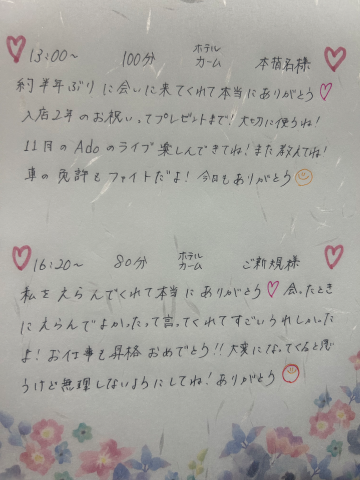 13:00~ 100分 ホテル カーム 本指名様
約半年ぶりに会いに来てくれて本当にありがとう♡
入店2年のお祝いってプレゼントまで!大切に使うね!
11月のAdoのライブ楽しんできてね!また教えてね!
車の免許もファイトだよ!今日もありがとう
16:20~ 80分 ホテル カーム ご新規様
私をえらんでくれて本当にありがとう♡会ったとき
にえらんでよかったって言ってくれてすごいうれしかった
よ!お仕事も昇格おめでとう!!大変になってくると思
うけど無理しないようにしてね!ありがとう